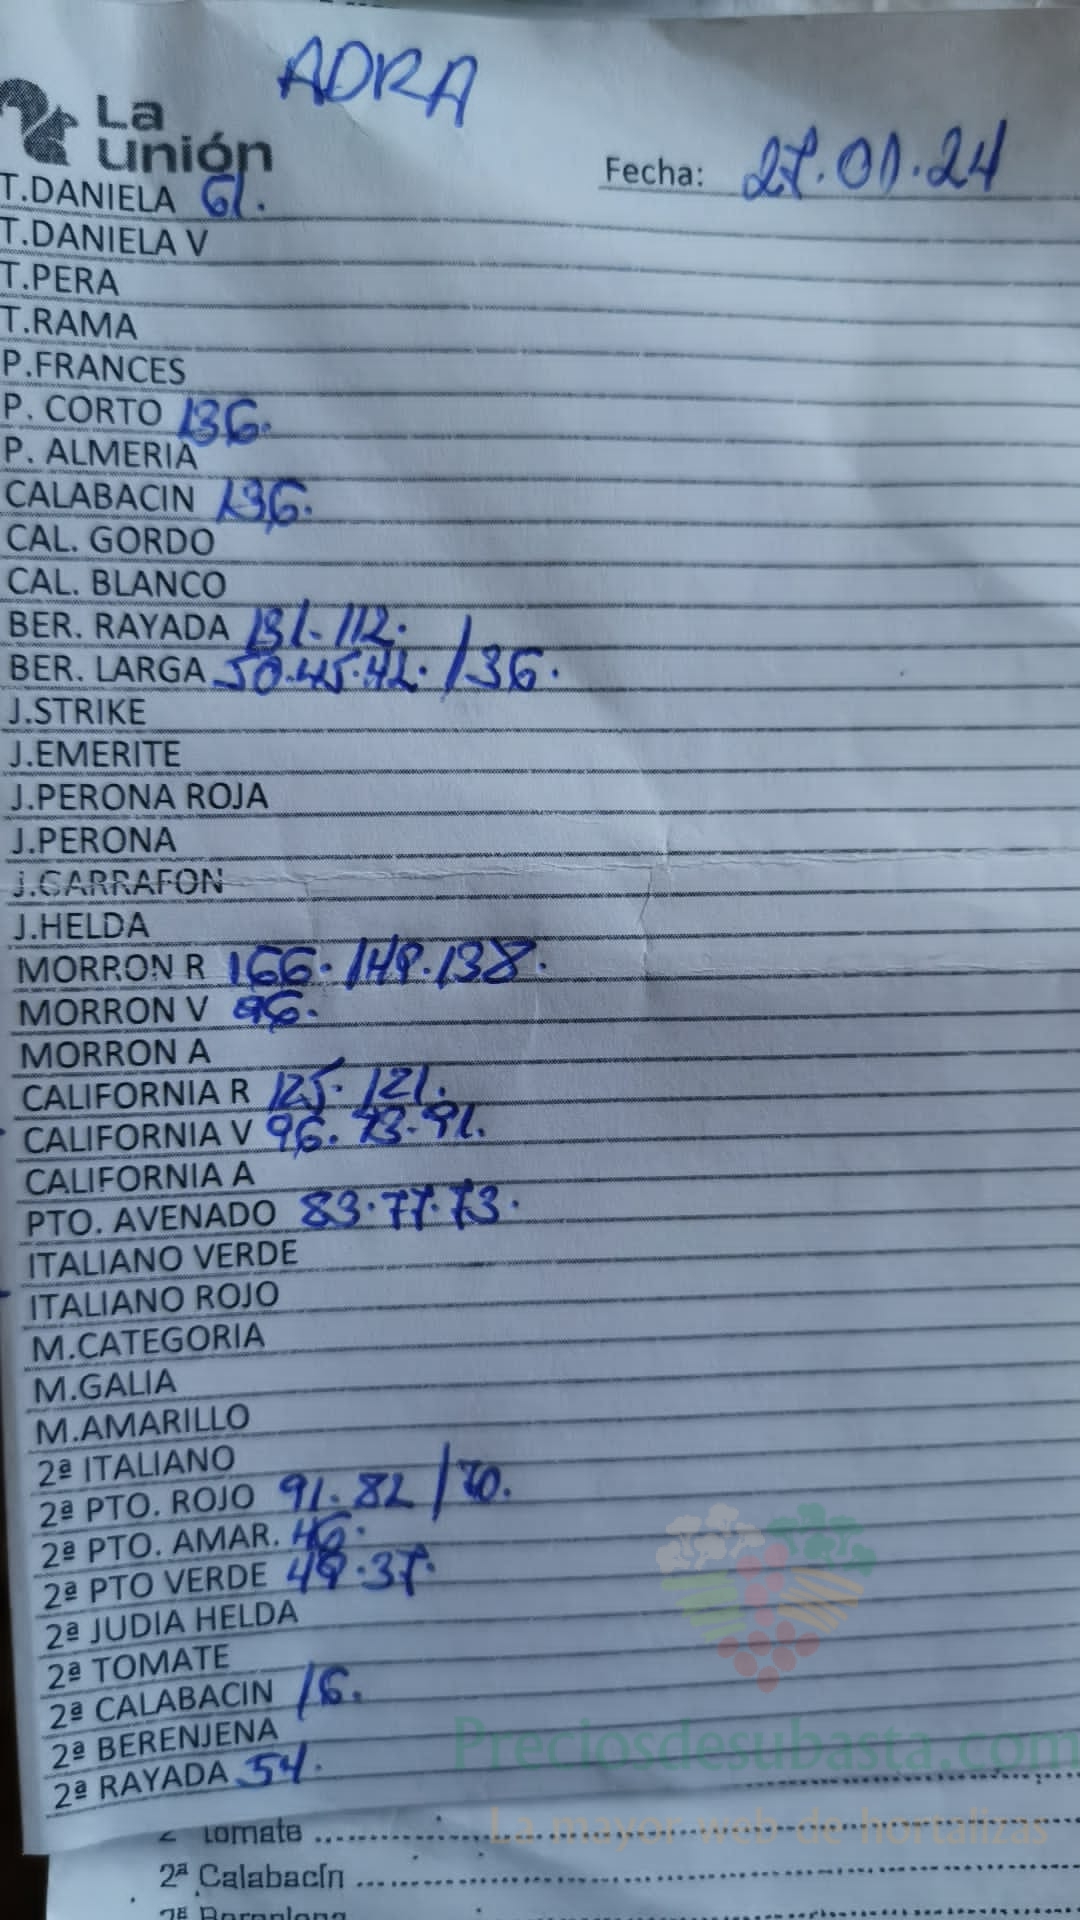 ADRA
La
Unión
Fecha: 27.01.24
T.DANIELA 61.
T.DANIELA V
T.PERA
T.RAMA
P.FRANCES
P. CORTO 136.
P. ALMERIA
CALABACIN 136.
CAL. GORDO
CAL. BLANCO
BER. RAYADA 131. 112.
BER. LARGA 50.45.42. /36.
J.STRIKE
J.EMERITE
J.PERONA ROJA
J.PERONA
J.GARRAFON
J.HELDA
MORRON R 166. 149.138.
MORRON V 96.
MORRON A
CALIFORNIA R 125. 121.
CALIFORNIA V 96. 93. 91.
CALIFORNIA A
PTO. AVENADO 83.77.73.
ITALIANO VERDE
ITALIANO ROJO
M.CATEGORIA
M.GALIA
M.AMARILLO
2ª ITALIANO
2ª PTO. ROJO 91. 82 /70.
2ª PTO. AMAR. 46.
2ª PTO VERDE 49.37.
2ª JUDIA HELDA
2ª TOMATE
2ª CALABACIN 16.
2ª BERENJENA
2ª RAYADA 54.
Preciosdesubasta.com
La mayor web de hortalizas
2ª Tomate
2ª Calabacín